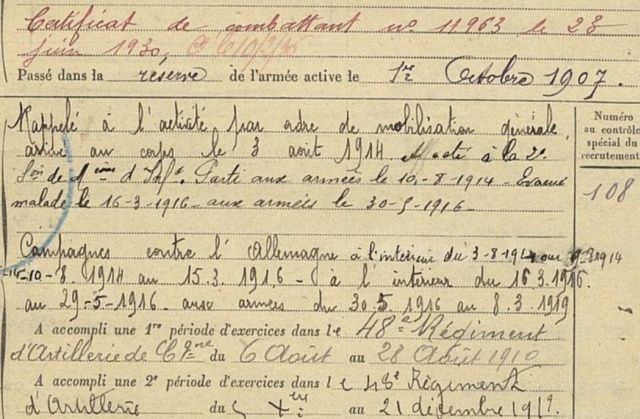 Certificat de combattant no 11963 le 23
juin 1930,
Passé dans la réserve de l'armée active le 1er Octobre 1907.
Rappelé à l'activité par ordre de mobilisation générale,
arrivé au corps le 3 août 1914. Affecté à la 2e
Son de 1ème d'Infie Parti aux armées le 10-8-1914 - Evacué
malade le 16-3-1916 - aux armées le 30-5-1916 -
Numéro
au contrôle
spécial du
recrutement.
108
Campagnes contre l'Allemagne à l'intérieur du 3-8-1914 au 9-8-1914
10-8-1914 au 15.3.1916 - à l'intérieur du 16.3.1916.
au 29-5-1916 aux armées du 30.5.1916 au 8.3.1919
A accompli une 1re période d'exercices dans le 48e Régiment
d'Artillerie de Cgne du 6 Août au 28 Août 1910
A accompli une 2e période d'exercices dans le 48e Régiment
d'Artillerie du au 21 décembre